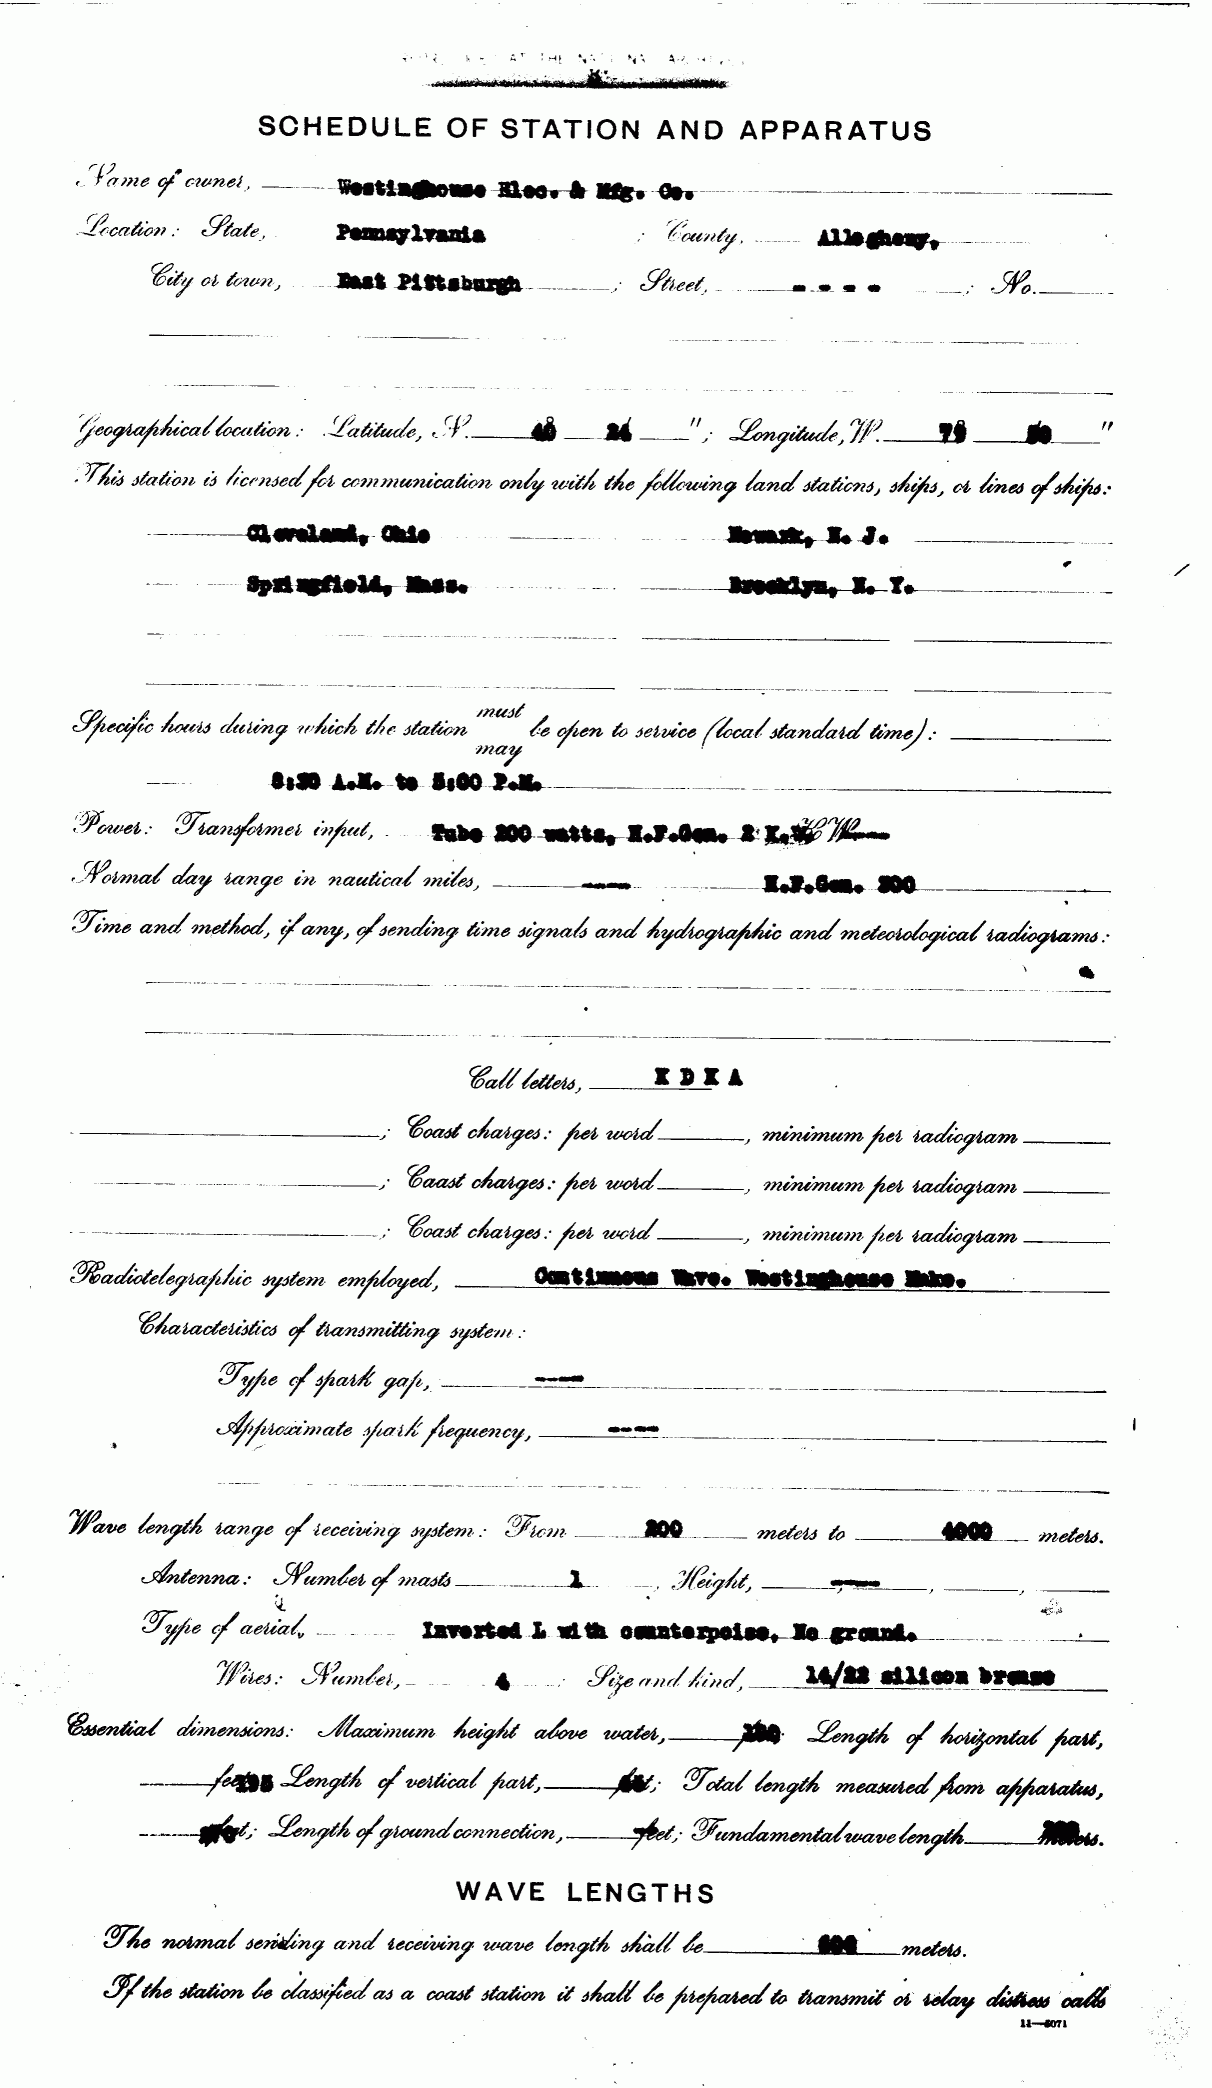 AT THE NATIONAL ARCHIVES
SCHEDULE OF STATION AND APPARATUS
Name of owner, Westinghouse Elec. & Mfg. Co.
Location: State, Pennsylvania ; County, Allegheny,
City or town, East Pittsburgh ; Street, - - - - ; No.
Geographical location: Latitude, N. 40 24 "; Longitude, W. 79 50 "
This station is licensed for communication only with the following land stations, ships, or lines of ships:
Cleveland, Ohio Newark, N. J.
Springfield, Mass. Brooklyn, N. Y.
Specific hours during which the station must may be open to service (local standard time):
8:30 A.M. to 5:00 P.M.
Power: Transformer input, Tube 200 watts, H.F.Gen. 2 K.W. K W
Normal day range in nautical miles, ---- H.F.Gen. 500
Time and method, if any, of sending time signals and hydrographic and meteorological radiograms:
Call letters, K D K A
; Coast charges: per word , minimum per radiogram
; Caast charges: per word , minimum per radiogram
; Coast charges: per word , minimum per radiogram
Radiotelegraphic system employed, Continuous Wave. Westinghouse Make.
Characteristics of transmitting system:
Type of spark gap, ----
Approximate spark frequency, ----
Wave length range of receiving system: From 200 meters to 4000 meters.
Antenna: Number of masts 1 , Height, ---- , ,
Type of aerial, Inverted L with counterpoise, No ground.
Wires: Number, 4 : Size and kind, 14/22 silicon bronze
Essential dimensions: Maximum height above water, Length of horizontal part,
feet Length of vertical part, feet; Total length measured from apparatus,
feet; Length of ground connection, feet; Fundamental wave length meters.
WAVE LENGTHS
The normal sending and receiving wave length shall be meters.
If the station be classified as a coast station it shall be prepared to transmit or relay distress calls
11—5071